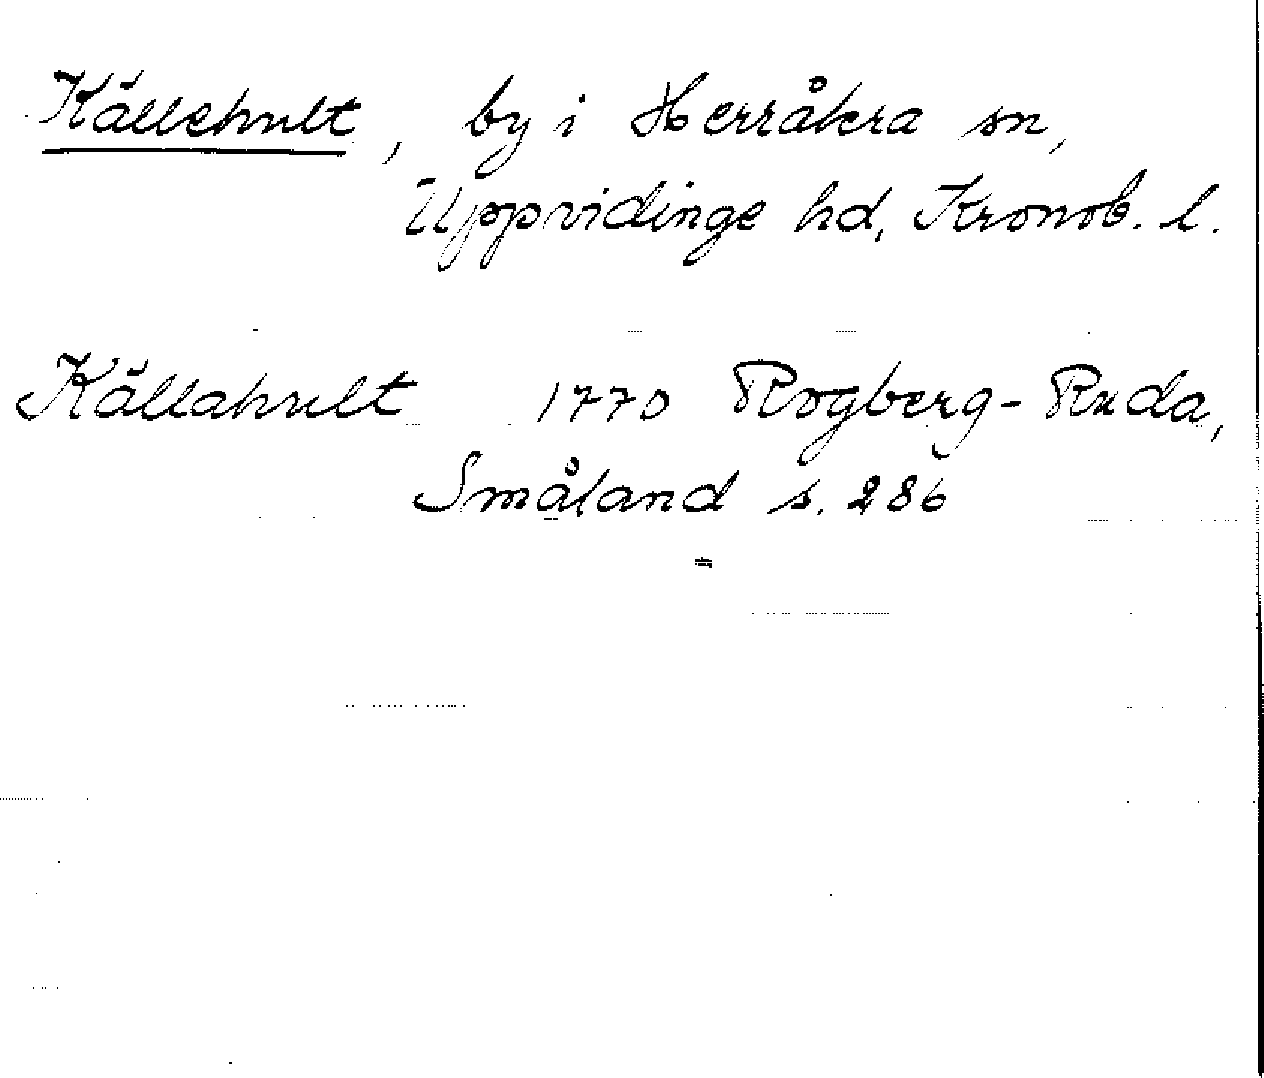 Källehult, by i Herråkra sn,
Uppvidinge hd, Kronob. l.
Källahult 1770 Rogberg-Ruda,
Småland s. 286